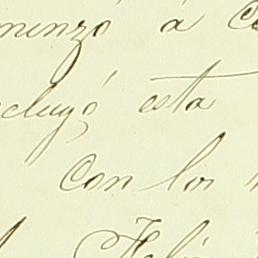 menzó á
cluyó esta
Con los